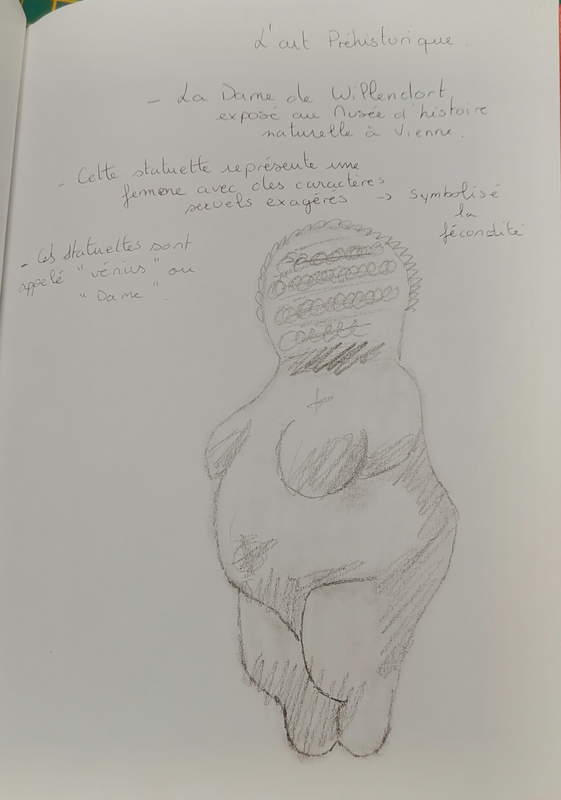 L'art Préhistorique.
- La Dame de Willendorf
exposé au Musée d'histoire
naturelle à Vienne.
- Cette statuette représente une
femme avec des caractères
sexuels exagérés -> symbolise
la
fécondité
- Ces statuettes sont
appelé "vénus" ou
"Dame".